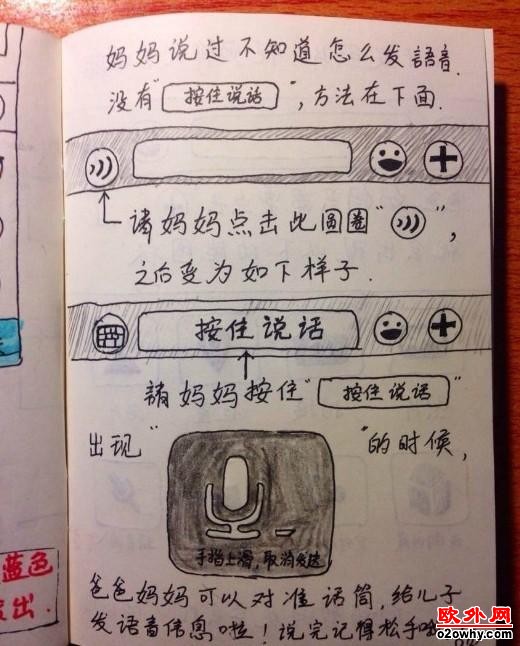 妈妈说过不知道怎么发語音.
没有"按住说话",方法在下面.
请妈妈点击此圆圈" ",
之后变为如下样子.
按住说话
請妈妈按住"按住说话"
出现" "的时候,
手指上滑,取消发送
爸爸妈妈可以对准话筒,给儿子
蓝色
发语音信息啦!说完记得松手
出.
欧外网
o2owhy.com